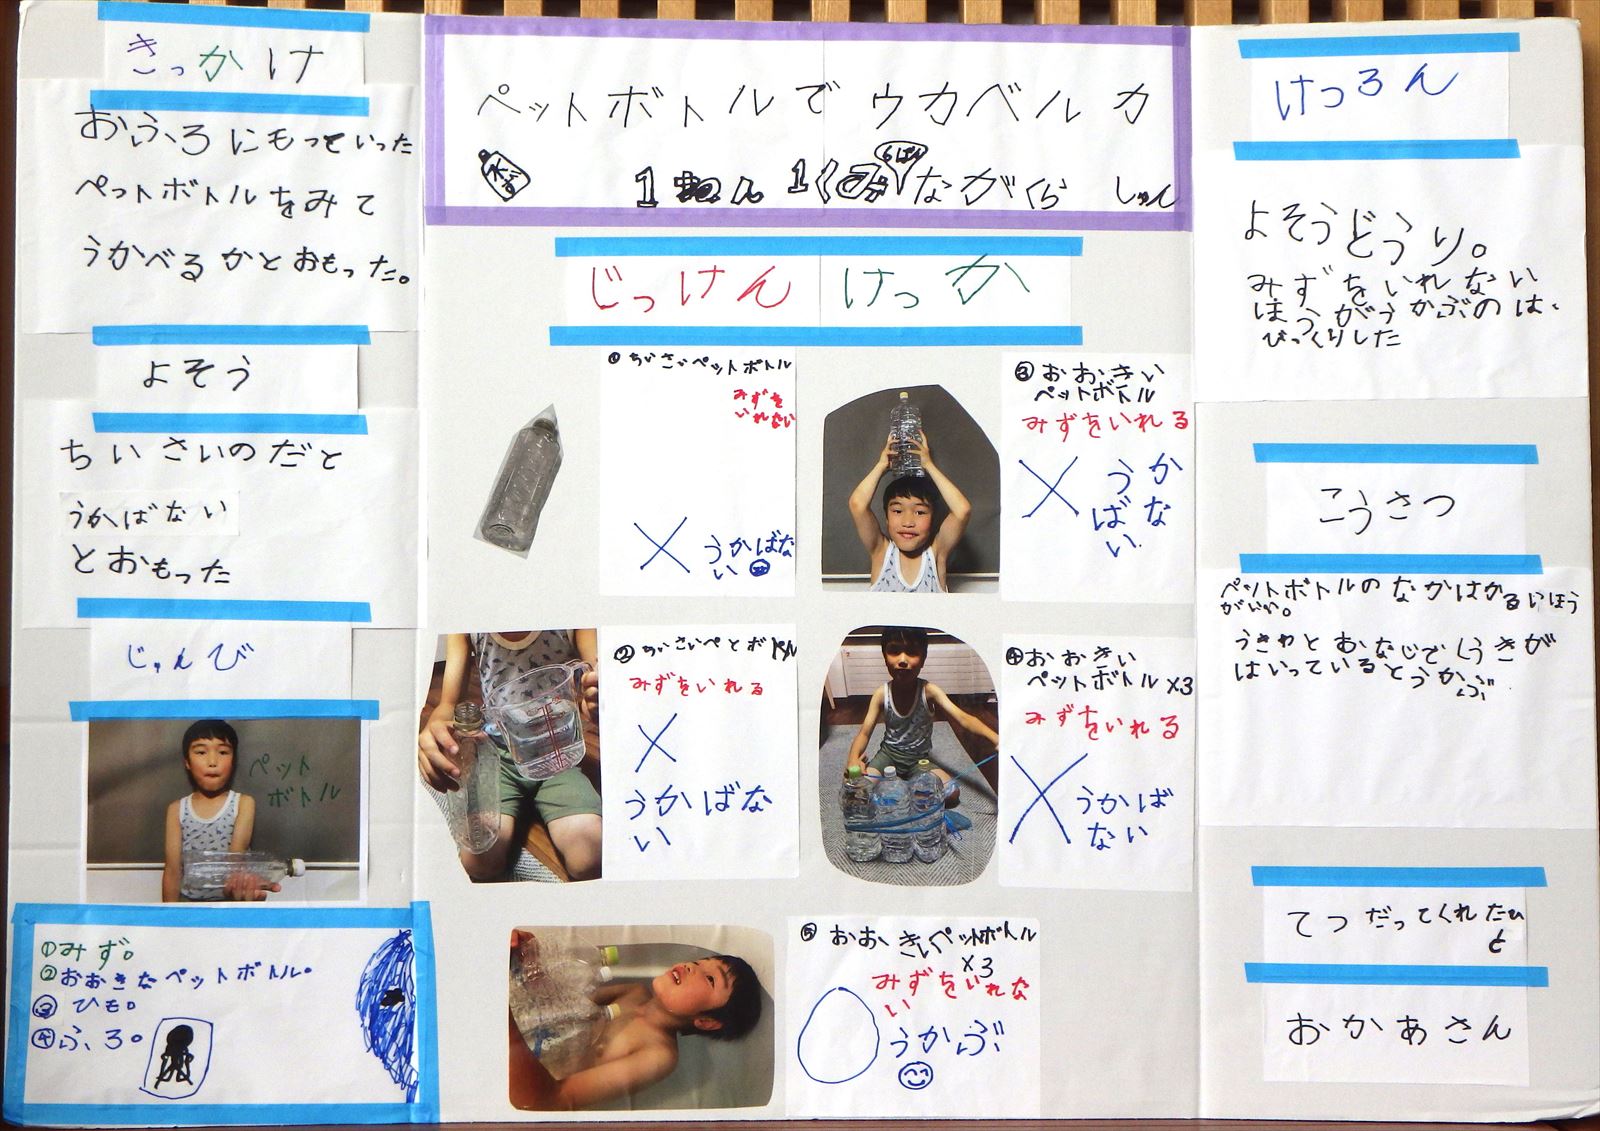 きっかけ
おふろにもっていった
ペットボトルをみて
うかべるかとおもった。
よそう
ちいさいのだと
うかばない
とおもった
じゅんび
ペット
ボトル
①みず。
②おおきなペットボトル。
③ひも。
④ふろ。
ペットボトルでウカベルカ
水
1ねん1くみ
ながくら しゅん
じっけんけっか
①ちいさいペットボトル
みずを
いれない
×うかばな
い
②ちいさいペとボトル
みずをいれる
×
うかばな
い
③おおきい
ペットボトル
みずをいれる
×うか
ばな
い.
④おおきい
ペットボトル×3
みずをいれる
×うかば
ない
⑤おおきいペットボトル
×3
みずをいれな
い
うかぶ
けつろん
よそうどうり。
みずをいれない
ほうがうかぶのは、
びっくりした
こうさつ
ペットボトルのなかはかるいほう
がいい。
うきわとおなじでくうきが
はいっているとうかぶ
てつだってくれたひ
と
おかあさん